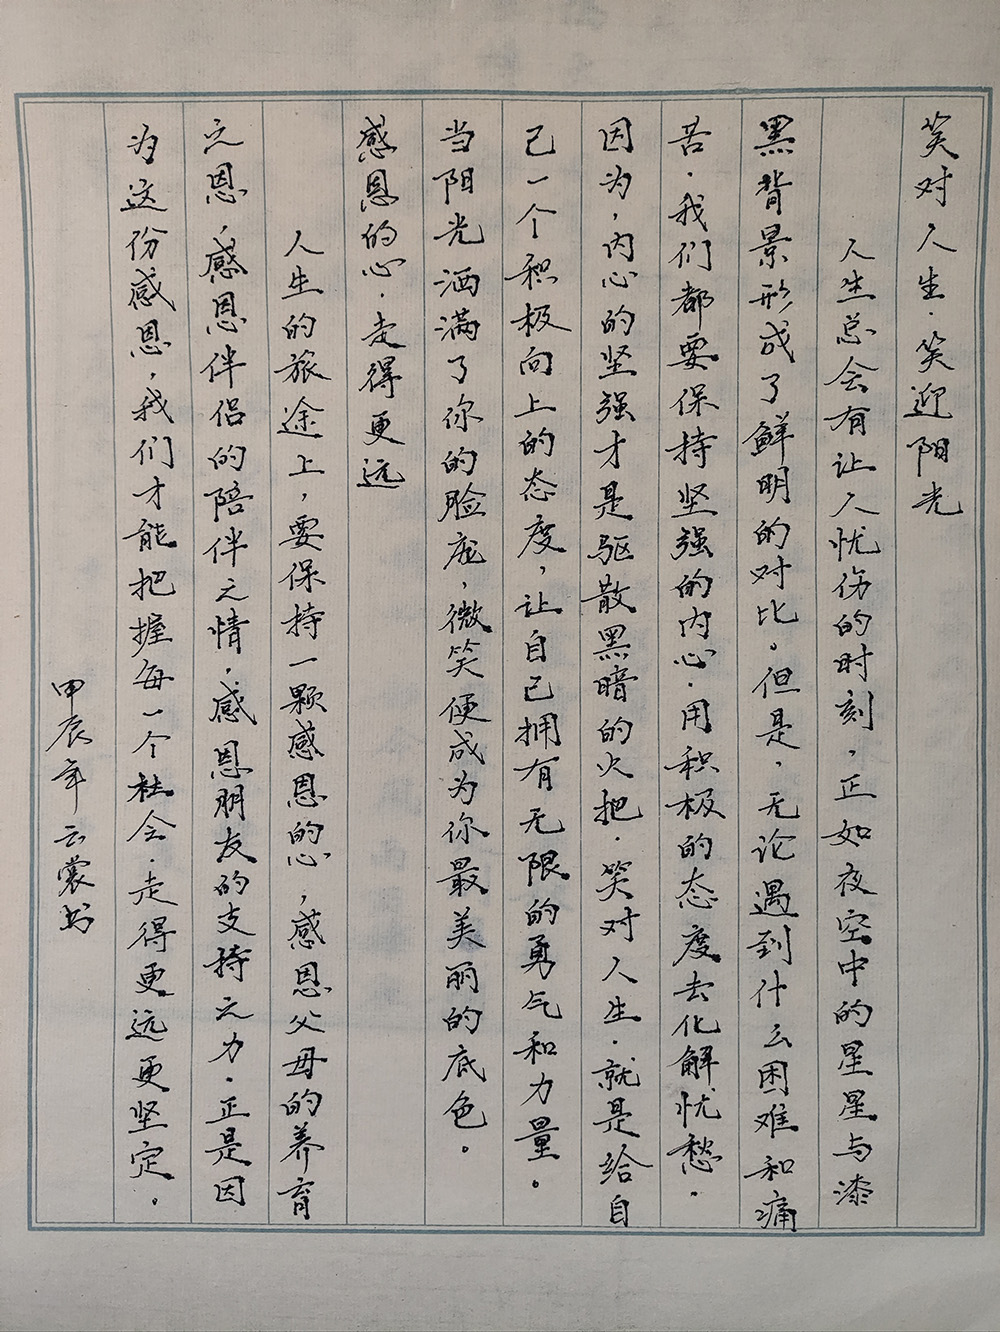 笑对人生.笑迎阳光
人生总会有让人忧伤的时刻,正如夜空中的星星与漆
黑背景形成了鲜明的对比。但是,无论遇到什么困难和痛
苦.我们都要保持坚强的内心.用积极的态度去化解忧愁.
因为,内心的坚强才是驱散黑暗的火把.笑对人生.就是给自
己一个积极向上的态度,让自己拥有无限的勇气和力量。
当阳光洒满了你的脸庞,微笑便成为你最美丽的底色。
感恩的心.走得更远
人生的旅途上,要保持一颗感恩的心,感恩父母的养育
之恩,感恩伴侣的陪伴之情,感恩朋友的支持之力.正是因
为这份感恩,我们才能把握每一个社会.走得更远更坚定。
甲辰年 云裳书